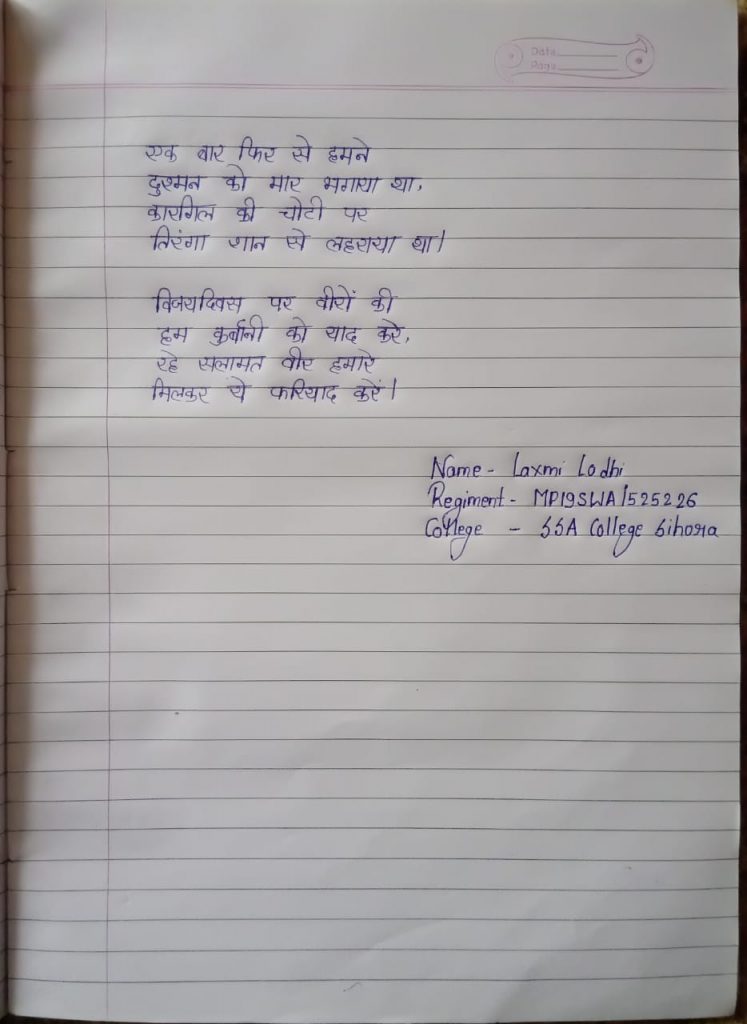 Date
Page
एक बार फिर से हमने
दुश्मन को मार भगाया था,
कारगिल की चोटी पर
तिरंगा शान से लहराया था।
विजयदिवस पर वीरों की
हम कुर्बानी को याद करे,
रहे सलामत वीर हमारे
मिलकर ये फरियाद करें।
Name - Laxmi Lodhi
Regiment - MP19SWA/525226
College - SSA College Sihora